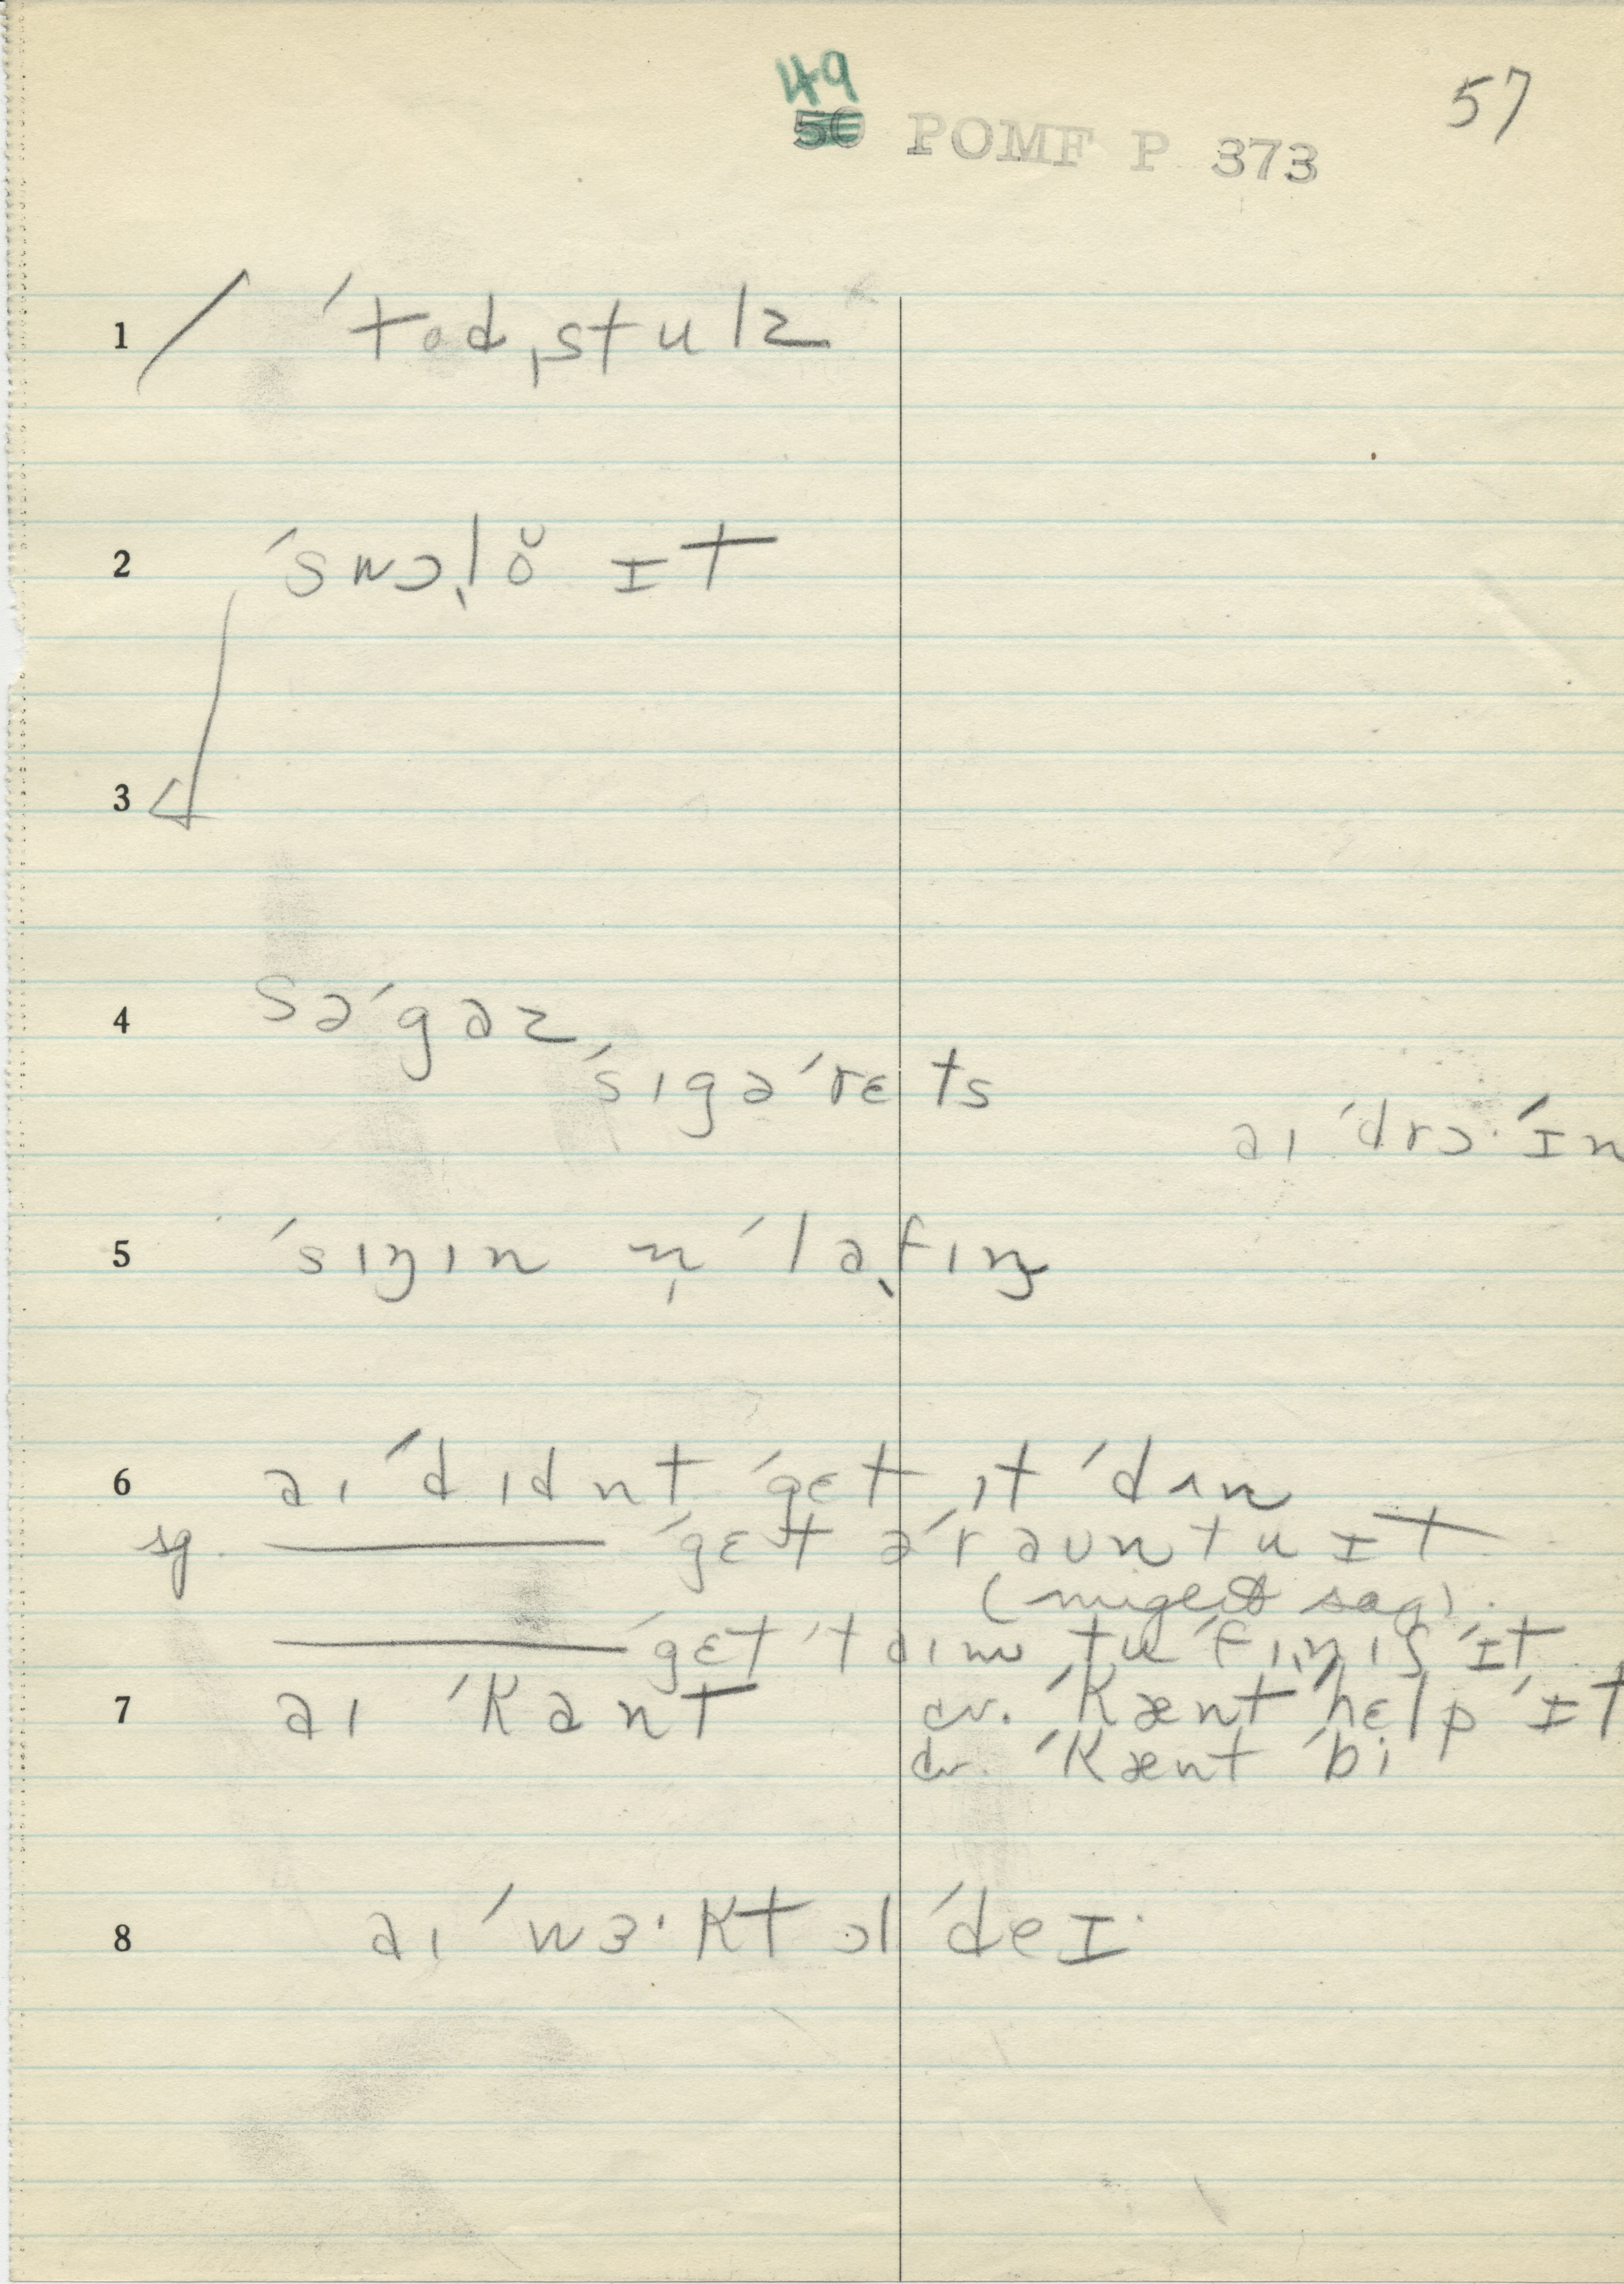 49
50 POMF P 373
57
1 / ˈtodˌstulz
2 ˈswɔˌlŏ ɪt
3
4 səˈgaz
ˈsɪgəˈrɛts
aɪ ˈdrɔ· ˈɪn
5 ˈsɪŋɪn n̩ ˈlaˌfɪŋ
6 aɪ ˈdɪdnt ˈgɛt ɪt ˈdʌn
sg. ——— ˈgɛt əˈraʊn tu ɪt
(might say).
——— ˈgɛt ˈtaɪm tu ˈfɪˌnɪʃ ˈɪt
7 aɪ ˈkant cv. ˈkænt ˈhɛlp ˈɪt
cv. ˈkænt ˈbi
8 aɪ ˈwɜ·kt ɔl ˈdeɪ·